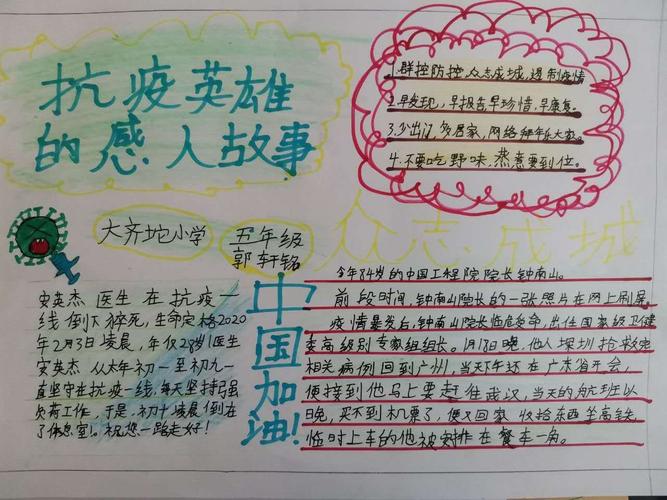 抗疫英雄
的感人故事
1.群控防控,众志成城,遏制疫情
2.早发现,早报告早珍惜,早康复。
3.少出门,多居家,网络拜年大家。
4.不要吃野味,蒸煮要到位。
大齐坨小学
五年级
郭轩铭
众志成城
中国加油!
宋英杰医生在抗疫一
线倒下猝死,生命定格2020
年2月3日凌晨,年仅28岁医生
宋英杰从大年初一至初九一
直坚守在抗疫一线,每天坚持超强
负荷工作,于是初十凌晨倒在
了休息室!。祝您一路走好!
今年84岁的中国工程院院长钟南山。
前段时间,钟南山院长的一张照片在网上刷屏,
疫情暴发后,钟南山院长临危受命,出任国家级卫健
委高级别专家组组长。1月18日晚,他从深圳抢救完
相关病例回到广州,当天下午还在广东省开会,
便接到他马上要赶往武汉,当天的航班以
已晚,买不到机票了,便又回家收拾东西坐高铁
临时上车的他被安排在餐车一角。